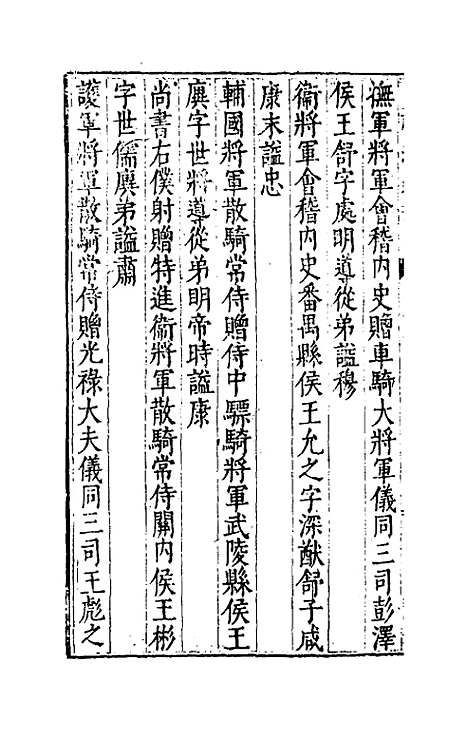 撫軍將軍會稽内史贈車騎大將軍儀同三司彭澤
侯王舒字處明導從弟謚穆
衞將軍會稽内史番禺縣侯王允之字深猷舒子咸
康末謚忠
輔國將軍散騎常侍贈侍中驃騎將軍武陵縣侯王
廙字世將導從弟明帝時謚康
尚書右僕射贈特進衞將軍散騎常侍關内侯王彬
字世儒廙弟謚肅
護軍將軍散騎常侍贈光祿大夫儀同三司王彪之